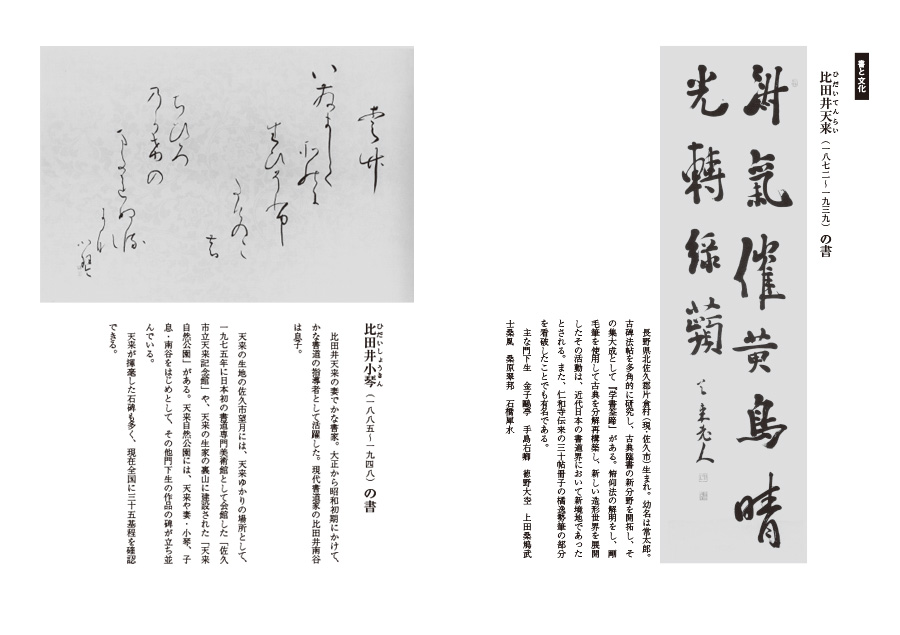 書と文化
ひだいてんらい
比田井天来（一八七二〜一九三九）の書
淑氣催黄鳥晴
光轉綠蘋
天来老人
長野県北佐久郡片倉村（現・佐久市）生まれ。幼名は常太郎。
古碑法帖を多角的に研究し、古典臨書の新分野を開拓し、そ
の集大成として『学書筌蹄』がある。俯仰法の解明をし、剛
毛筆を使用して古典を分解再構築し、新しい造形世界を展開
したその活動は、近代日本の書道界において新境地であった
とされる。また、仁和寺伝来の三十帖冊子の橘逸勢筆の部分
を看破したことでも有名である。
主な門下生　金子鷗亭　手島右卿　徳野大空　上田桑鳩　武
士桑風　桑原翠邦　石橋犀水
ひだいしょうきん
比田井小琴（一八八五〜一九四八）の書
比田井天来の妻でかな書家。大正から昭和初期にかけて、
かな書道の指導者として活躍した。現代書道家の比田井南谷
は息子。
天来の生地の佐久市望月には、天来ゆかりの場所として、
一九七五年に日本初の書道専門美術館として会館した「佐久
市立天来記念館」や、天来の生家の裏山に建設された「天来
自然公園」がある。天来自然公園には、天来や妻・小琴、子
息・南谷をはじめとして、その他門下生の作品の碑が立ち並
んでいる。
天来が揮毫した石碑も多く、現在全国に三十五基程を確認
できる。